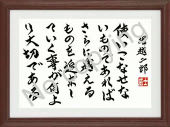 使いこなせな
いものであれば
さらに使える
ものを活かし
ていく事が何よ
り大切である